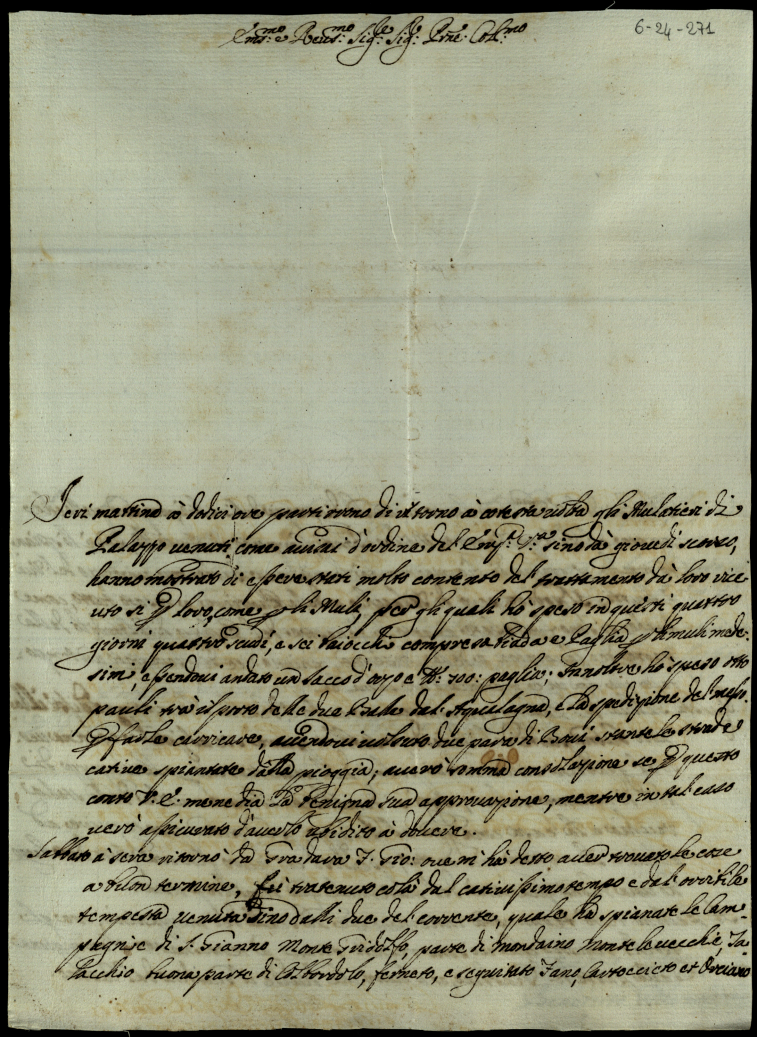 6-24-271
Em.mo e Rev.mo Sig.re Sig.re P.rone Col.mo
Ieri mattina à dodici ore partirono di ritorno à cotesta volta gli Mulatieri di
Palazzo venuti, come avvisai d'ordine dell'Em.za V.ra sino dà giovedi scorso,
hanno mostrato di essere stati molto contento del trattamento dà loro rice
uto si p loro, come p li Muli, per gli quali hò speso in questi quattro
giorni quattro scudi, e sei baiocchi compresa Biada e Paglia p li muli mede:
simi, essendovi andato un sacco d'orzo e 700: paglia; Inoltre hò speso otto
pauli trà il porto delle due Balle dal Aqualagna, e la spedizione del messo
p farle carricare, avendovi voluto due para di Bovi stante le strade
cative spiantate dalla pioggia; averò somma consolazione se p questo
conto V.E. me ne dia la benigna sua approvazione, mentre in tal caso
verò assicurato d'averlo ubidito à dovere.
Sabbato à sera ritornò da Gradara S. Gio: ove mi hà detto aver trovato le cose
a bilon termine, Fù tratenuto colà dal cativissimo tempo e dal orribile
tempesta venuta sino dalli due del corrente, quale hà spianate le Cam=
pagnie di S. Gianno Monte Gridolfo, parte di mondaino Monte levecchie, Ta
lacchio buona parte di Colbordolo, ferneto, e seguitato Fano, Cartocceto et Orciano